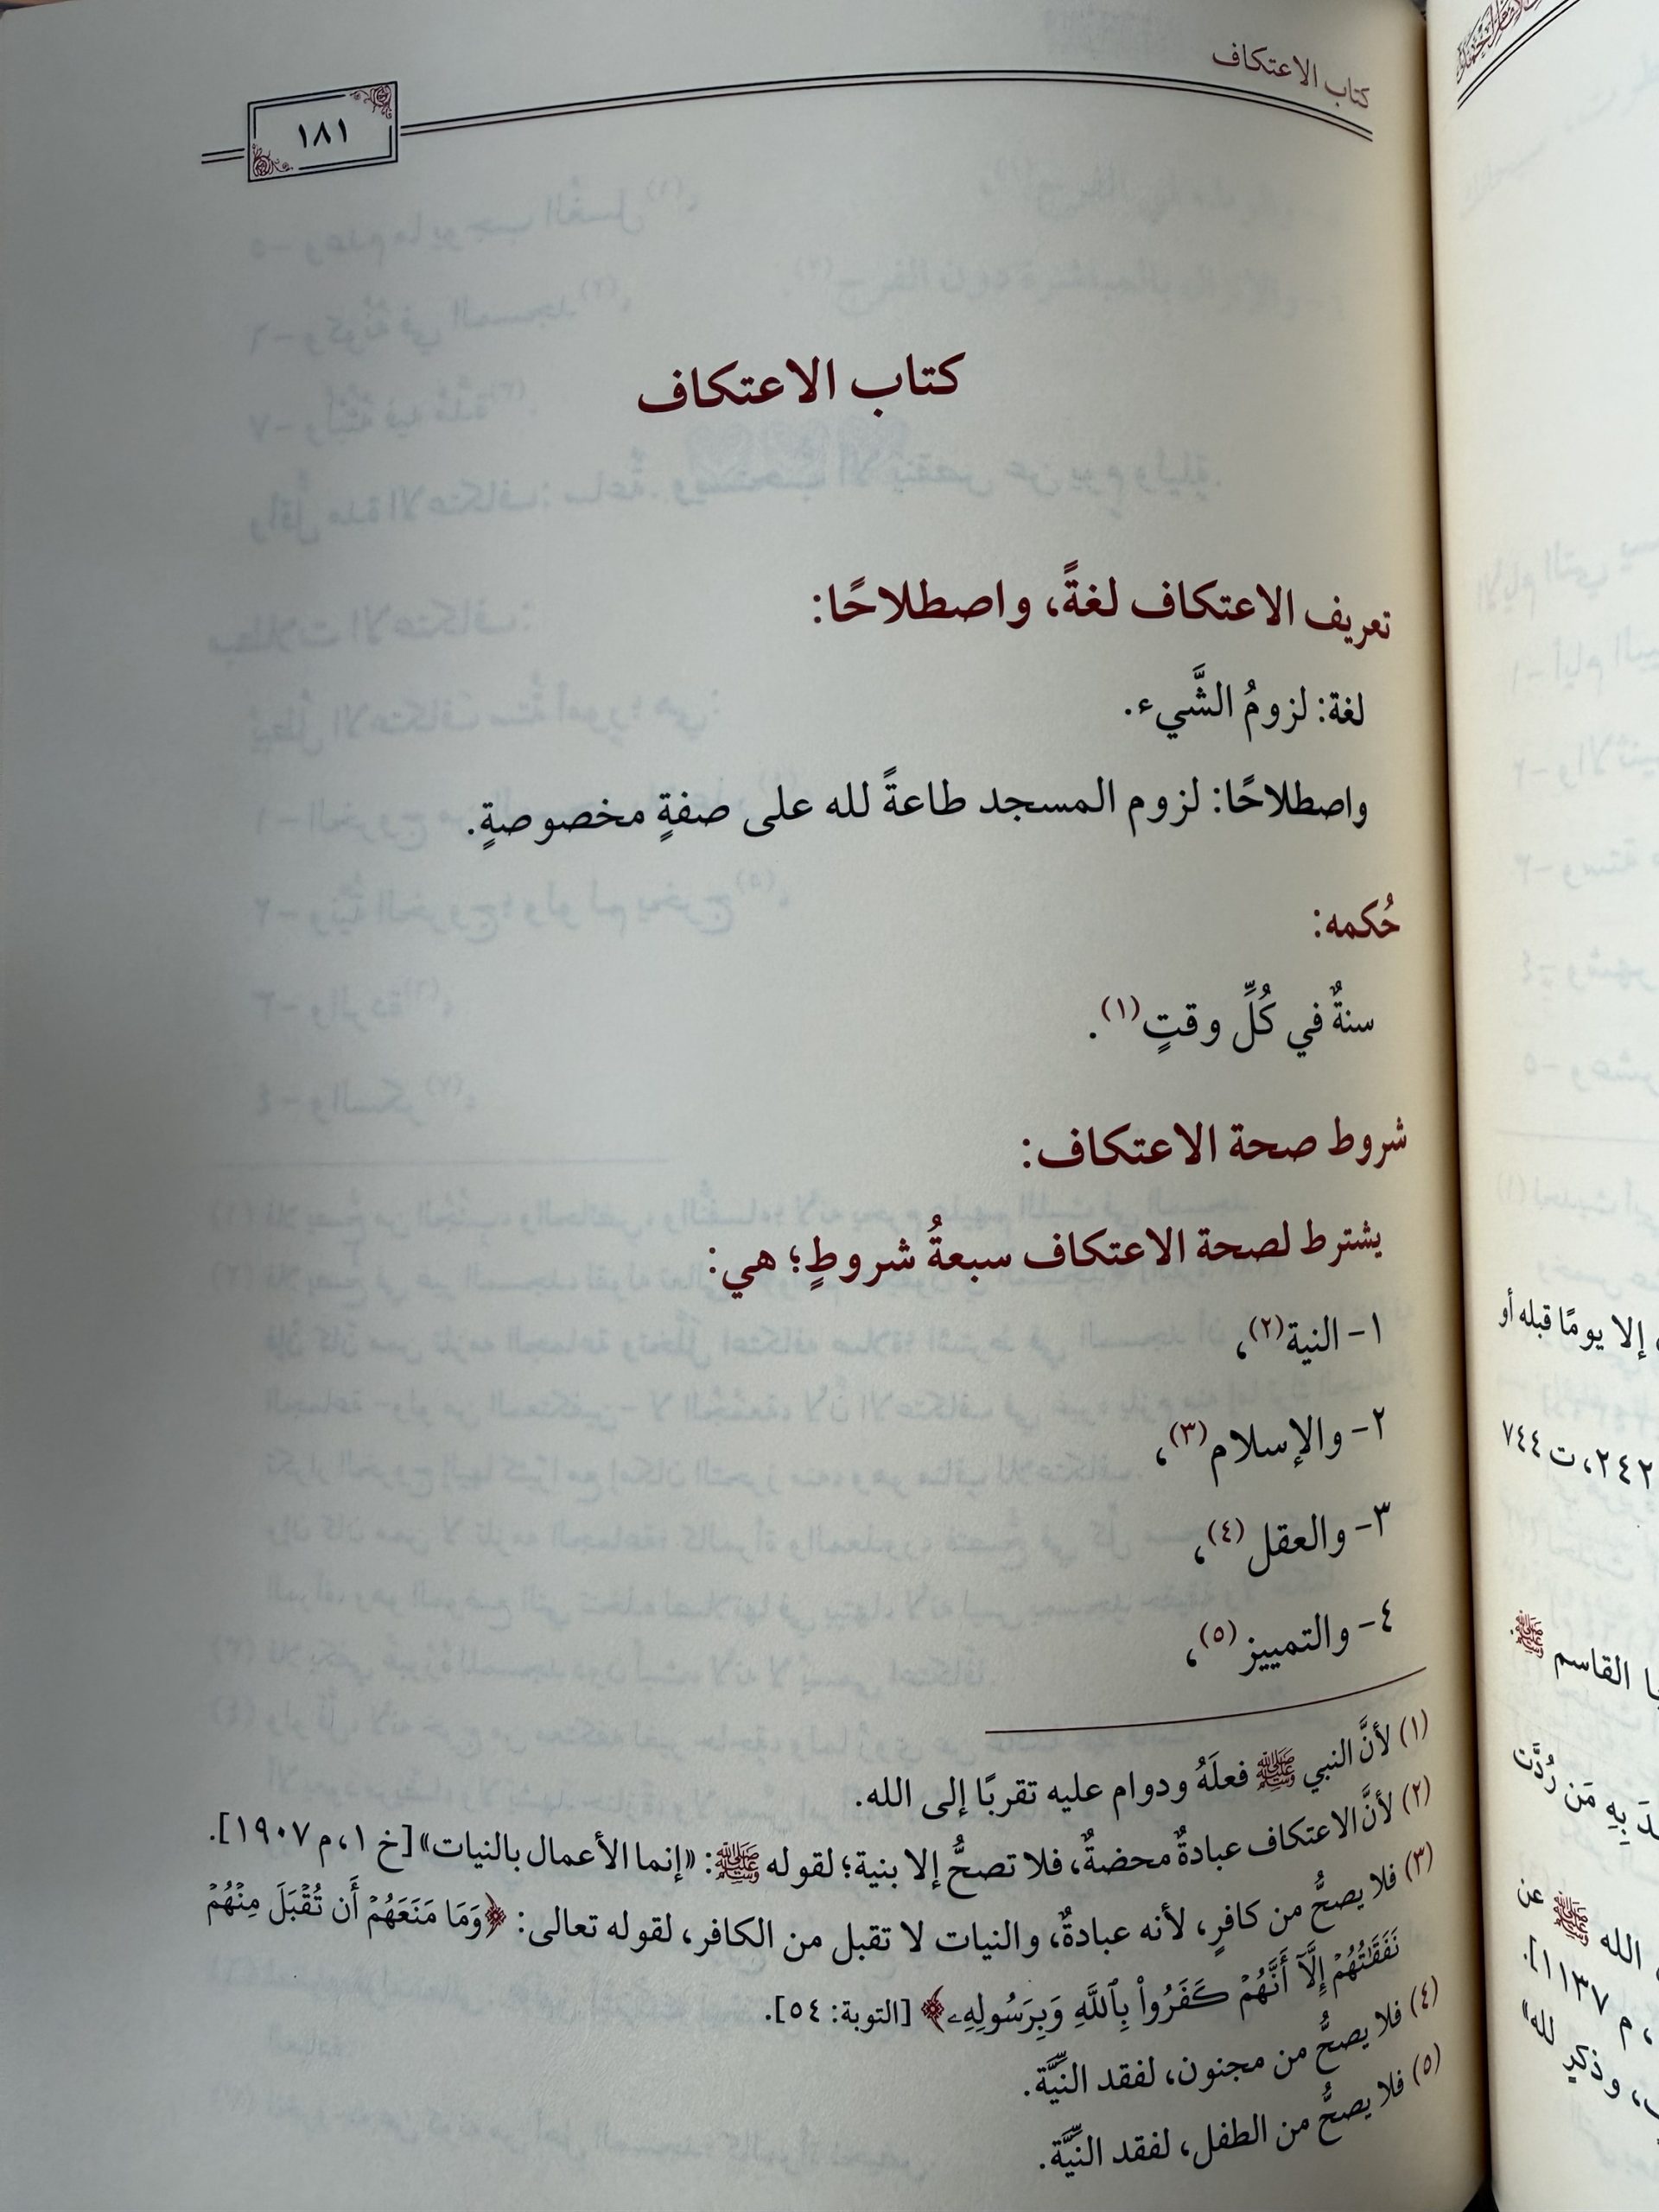 كتاب الاعتكاف
١٨١
كتاب الاعتكاف
تعريف الاعتكاف لغةً، واصطلاحًا:
لغة: لزومُ الشَّيء.
واصطلاحًا: لزوم المسجد طاعةً لله على صفةٍ مخصوصةٍ.
حُكمه:
سنةٌ في كُلِّ وقتٍ(١).
شروط صحة الاعتكاف:
يشترط لصحة الاعتكاف سبعةُ شروطٍ؛ هي:
١- النية(٢)،
٢- والإسلام(٣)،
٣- والعقل(٤)،
٤- والتمييز(٥)،
(١) لأنَّ النبي ﷺ فعلَهُ ودوام عليه تقربًا إلى الله.
(٢) لأنَّ الاعتكاف عبادةٌ محضةٌ، فلا تصحُّ إلا بنية؛ لقوله ﷺ: «إنما الأعمال بالنيات» [خ ١، م ١٩٠٧].
(٣) فلا يصحُّ من كافرٍ، لأنه عبادةٌ، والنيات لا تقبل من الكافر، لقوله تعالى: ﴿وَمَا مَنَعَهُمۡ أَن تُقۡبَلَ مِنۡهُمۡ
نَفَقَٰتُهُمۡ إِلَّآ أَنَّهُمۡ كَفَرُواْ بِٱللَّهِ وَبِرَسُولِهِۦ﴾ [التوبة: ٥٤].
(٤) فلا يصحُّ من مجنون، لفقد النِّيَّة.
(٥) فلا يصحُّ من الطفل، لفقد النِّيَّة.
إلا يومًا قبله أو
٢٤٢، ت ٧٤٤
القاسم ﷺ
بِهِ مَن رُدَّت
الله ﷺ عن
، م ١١٣٧].
، وذكرٍ لله»